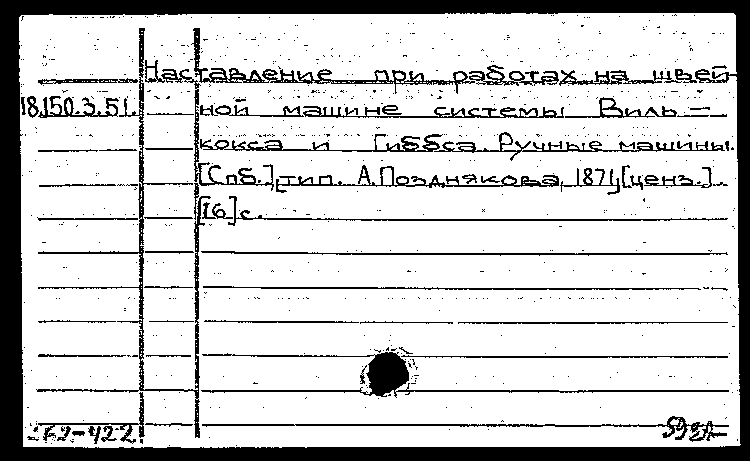 Наставление при работах на швей-
18.150.3.51. ной машине системы Виль-
кокса и Гиббса. Ручные машины.
[Спб.], тип. А. Позднякова, 1871, [ценз.].
[16] с.
62-422